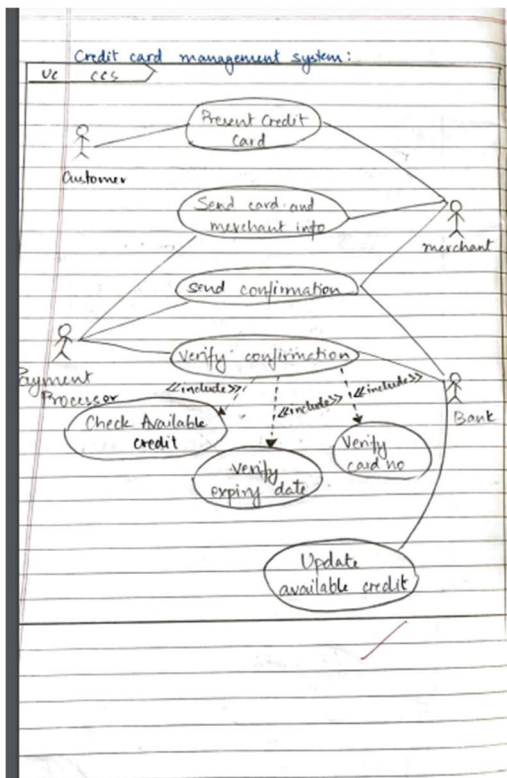 Credit card management system:
UC CCS
Present Credit
Card
Customer
Send card and
merchant info
merchant
Send confirmation
Verify confirmation
Payment
Processor
<<include>>
<<include>>
<<include>>
Bank
Check Available
credit
Verify
card no
Verify
expiry date
Update
available credit